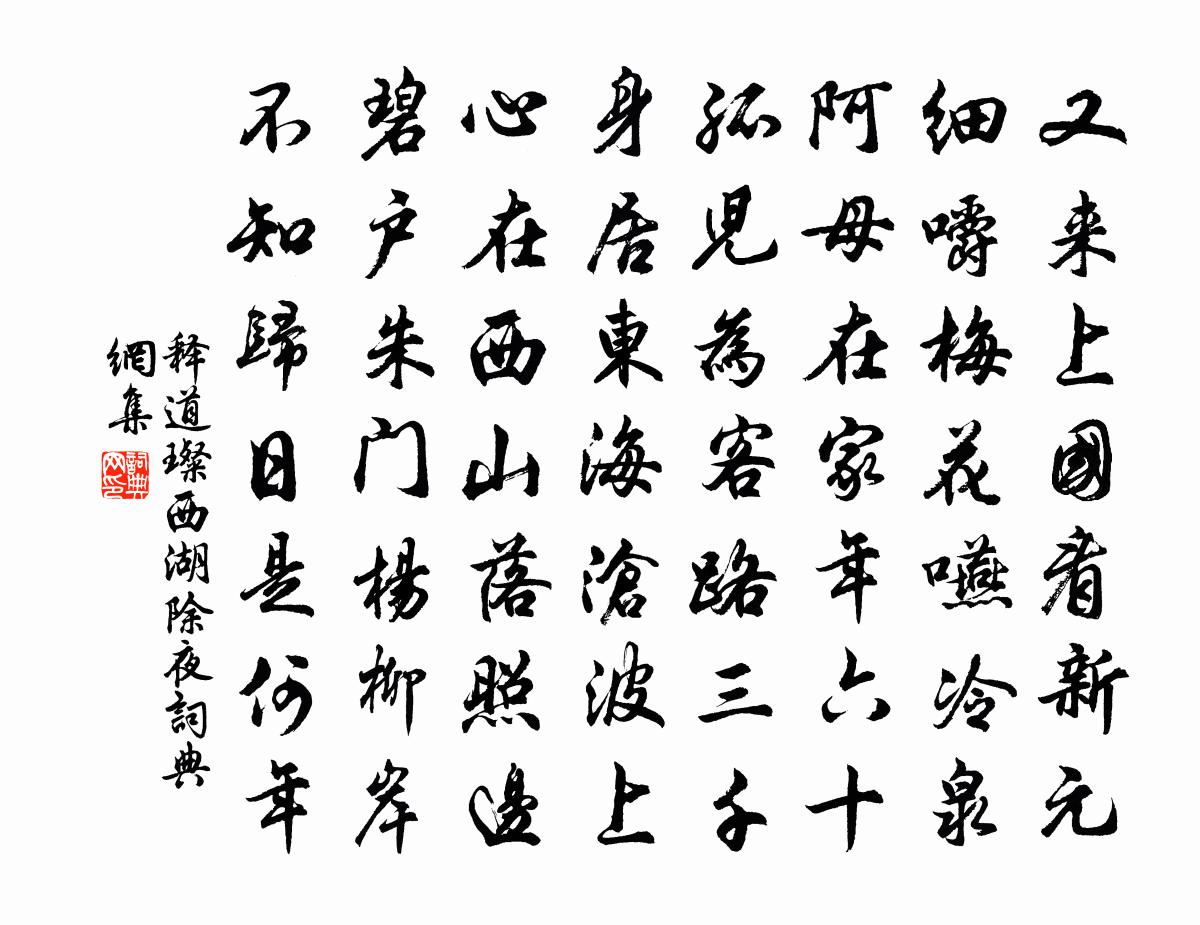 又来上國看新元
細嚼梅花嚥冷泉
阿母在家年六十
孤児為客路三千
身居東海滄波上
心在西山落照邊
碧户朱門楊柳岸
不知歸日是何年
释道璨西湖除夜詞典
網集
詞典
网印